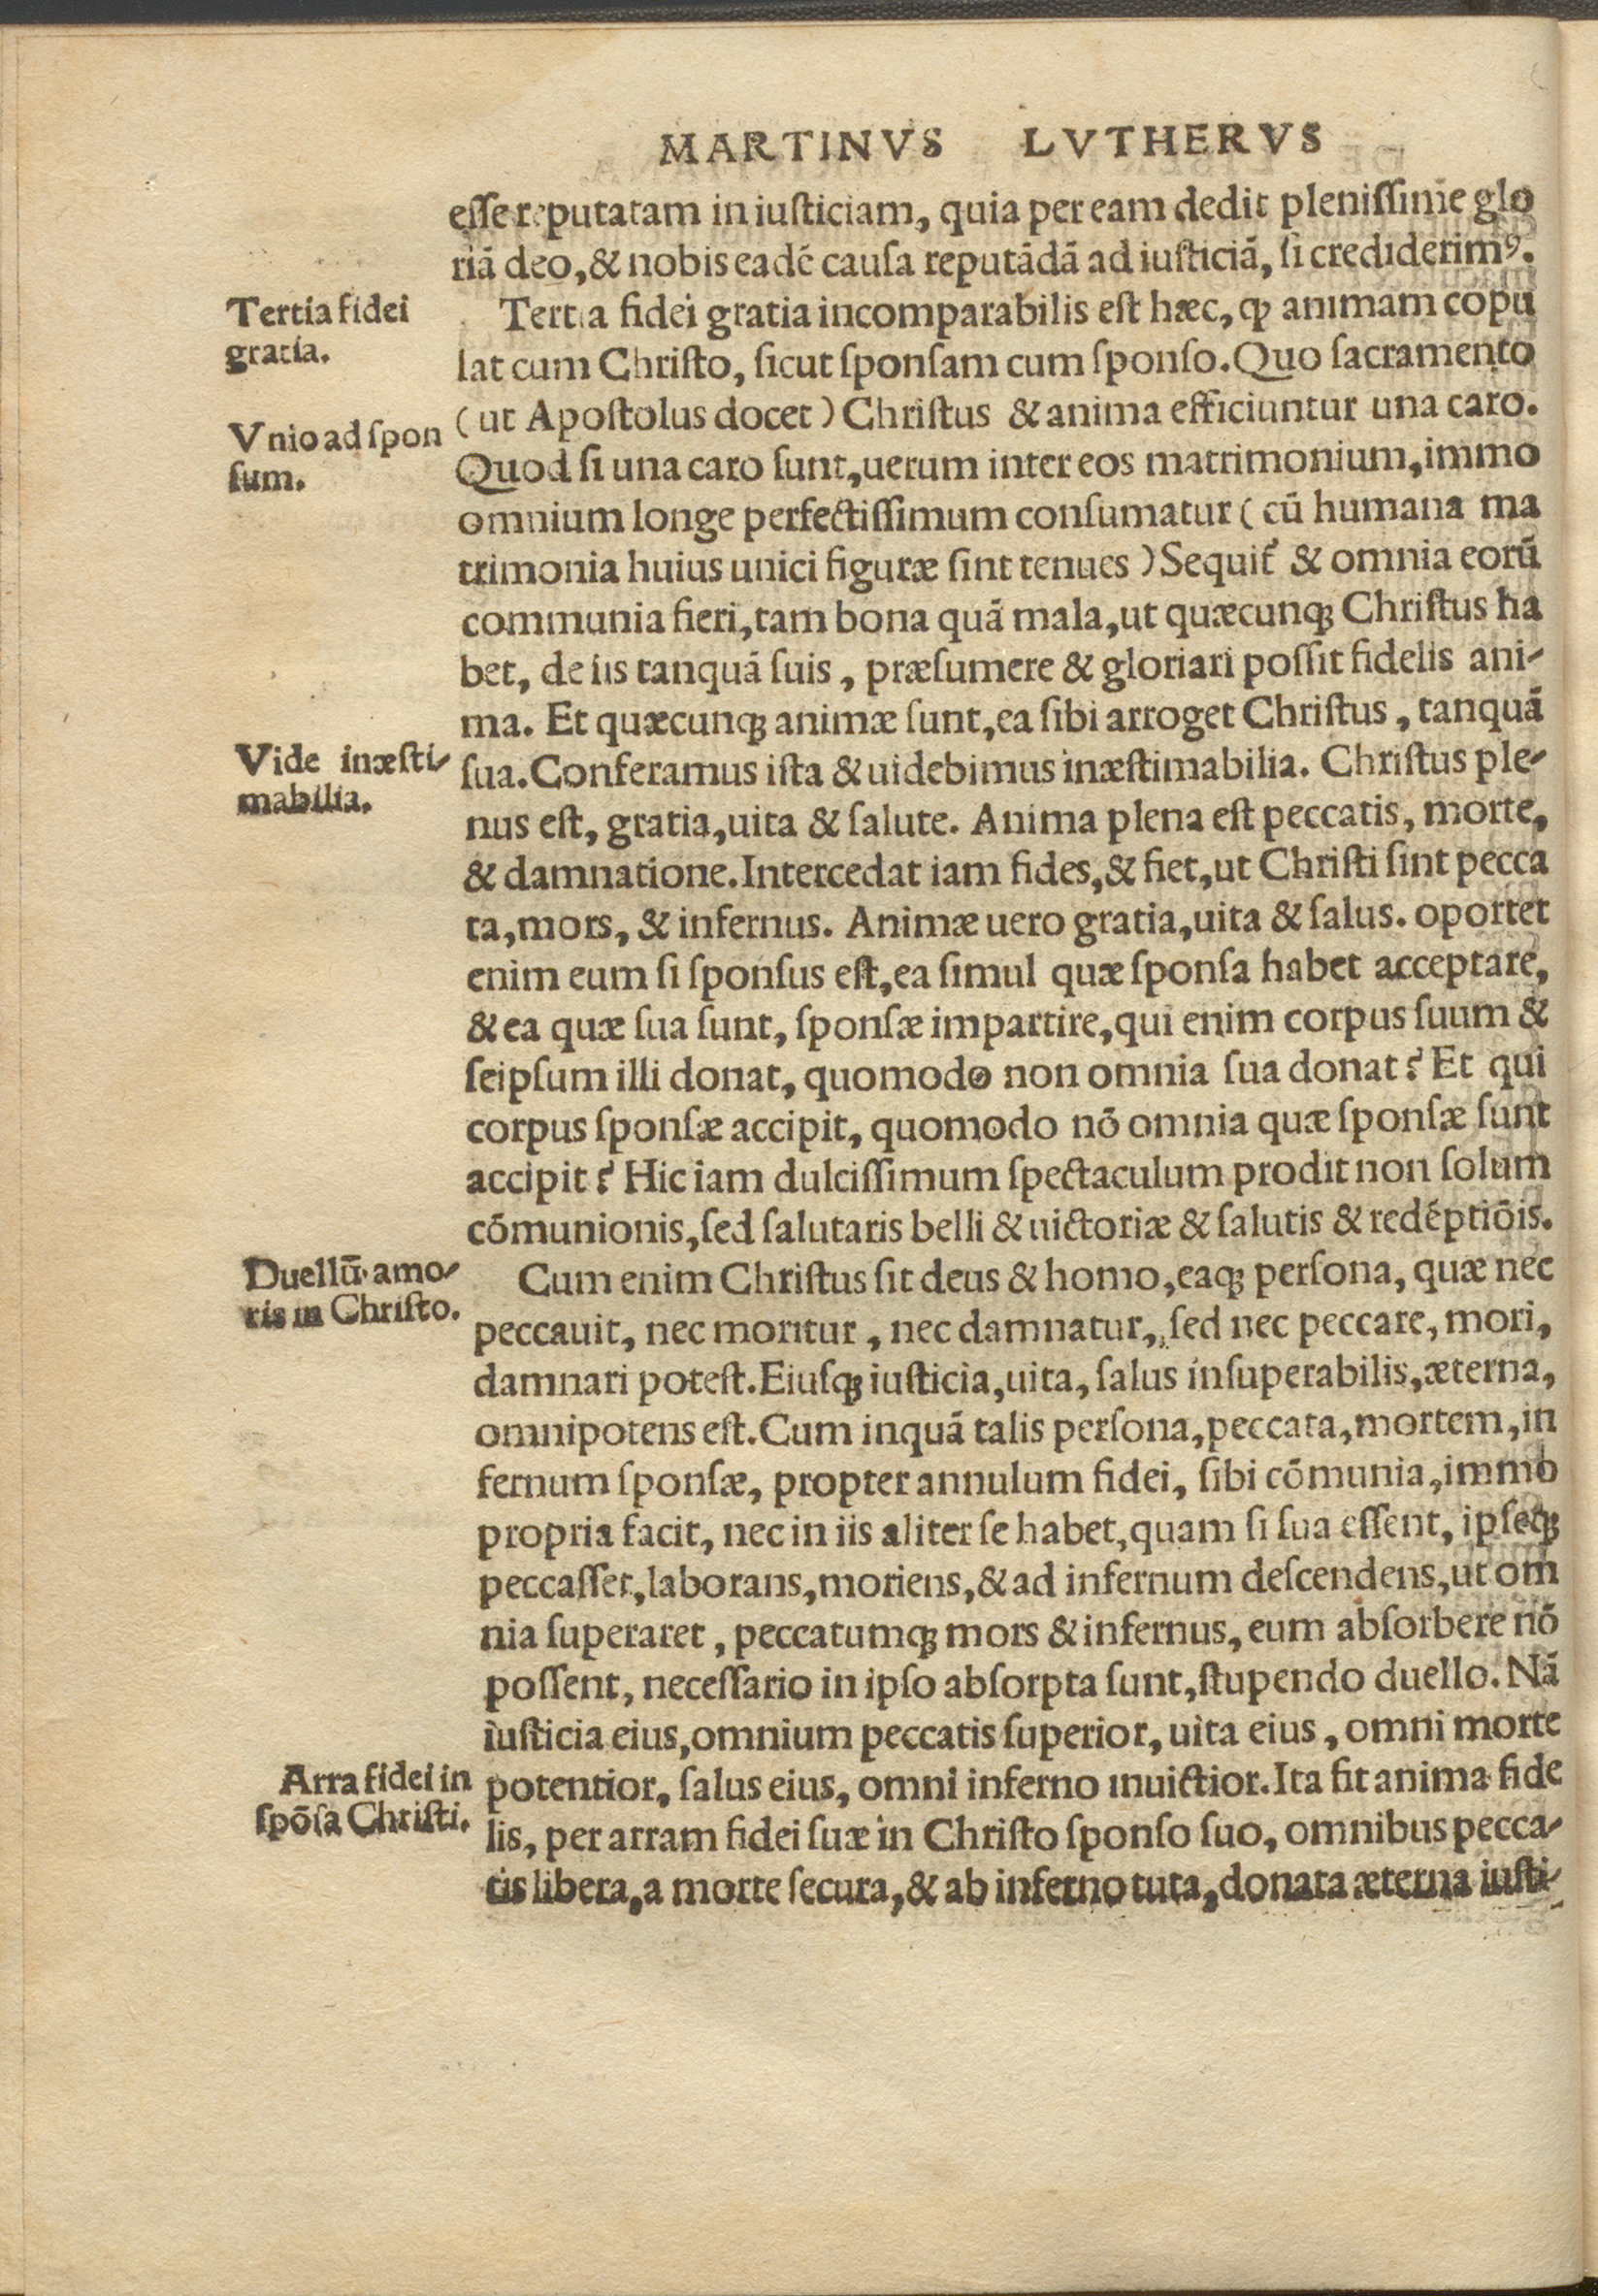 MARTINVS LVTHERVS
eſſe reputatam in iuſticiam, quia per eam dedit pleniſſime glo
riā deo, & nobis eadē cauſa reputādā ad iuſticiā, ſi crediderimꝰ.
Tertia fidei
gratia.
Tertia fidei gratia incomparabilis eſt hæc, ꝙ animam copu
lat cum Chriſto, ſicut ſponſam cum ſponſo. Quo ſacramento
(ut Apoſtolus docet) Chriſtus & anima efficiuntur una caro.
Vnio ad ſpon
ſum.
Quod ſi una caro ſunt, uerum inter eos matrimonium, immo
omnium longe perfectiſſimum conſumatur (cū humana ma
trimonia huius unici figuræ ſint tenues) Sequit᷑ & omnia eorū
communia fieri, tam bona quā mala, ut quæcunqꝫ Chriſtus ha
bet, de iis tanquā ſuis, præſumere & gloriari poſſit fidelis ani-
ma. Et quæcunqꝫ animæ ſunt, ea ſibi arroget Chriſtus, tanquā
Vide inæſti-
mabilia.
ſua. Conferamus iſta & uidebimus inæſtimabilia. Chriſtus ple-
nus eſt, gratia, uita & ſalute. Anima plena eſt peccatis, morte,
& damnatione. Intercedat iam fides, & fiet, ut Chriſti ſint pecca
ta, mors, & infernus. Animæ uero gratia, uita & ſalus. oportet
enim eum ſi ſponſus eſt, ea ſimul quæ ſponſa habet acceptare,
& ea quæ ſua ſunt, ſponſæ impartire, qui enim corpus ſuum &
ſeipſum illi donat, quomodo non omnia ſua donat? Et qui
corpus ſponſæ accipit, quomodo nō omnia quæ ſponſæ ſunt
accipit? Hic iam dulciſſimum ſpectaculum prodit non ſolum
cōmunionis, ſed ſalutaris belli & uictoriæ & ſalutis & redēptiōis.
Duellū amo-
ris in Chriſto.
Cum enim Chriſtus ſit deus & homo, eaqꝫ perſona, quæ nec
peccauit, nec moritur, nec damnatur, ſed nec peccare, mori,
damnari poteſt. Eiuſqꝫ iuſticia, uita, ſalus inſuperabilis, æterna,
omnipotens eſt. Cum inquā talis perſona, peccata, mortem, in
fernum ſponſæ, propter annulum fidei, ſibi cōmunia, immo
propria facit, nec in iis aliter ſe habet, quam ſi ſua eſſent, ipſeqꝫ
peccaſſet, laborans, moriens, & ad infernum deſcendens, ut om
nia ſuperaret, peccatumqꝫ mors & infernus, eum abſorbere nō
poſſent, neceſſario in ipſo abſorpta ſunt, ſtupendo duello. Nā
iuſticia eius, omnium peccatis ſuperior, uita eius, omni morte
Arra fidei in
ſpōſa Chriſti.
potentior, ſalus eius, omni inferno inuictior. Ita fit anima fide
lis, per arram fidei ſuæ in Chriſto ſponſo ſuo, omnibus pecca-
tis libera, a morte ſecura, & ab inferno tuta, donata æterna iuſti-